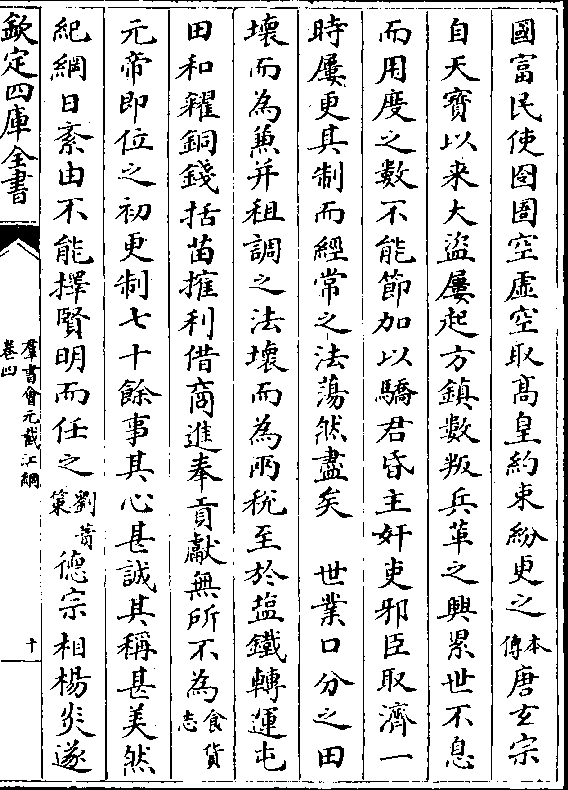 國富民使囹圄空虛空取髙皇約束紛更之本傳唐玄宗
自天寳以來大盜屢起方鎮數叛兵革之興累世不息
而用度之數不能節加以驕君昏主奸吏邪臣取濟一
時屢更其制而經常之法蕩然盡矣　世業口分之田
壞而為兼并租調之法壞而為兩稅至於塩鐵轉運屯
田和糴銅錢括苗搉利借商進奉貢獻無所不為食貨志
元帝即位之初更制七十餘事其心甚誠其稱甚美然
紀綱日紊由不能擇賢明而任之劉蕡策德宗相楊炎遂
欽定四庫全書
羣書會元截江綱
卷四
十